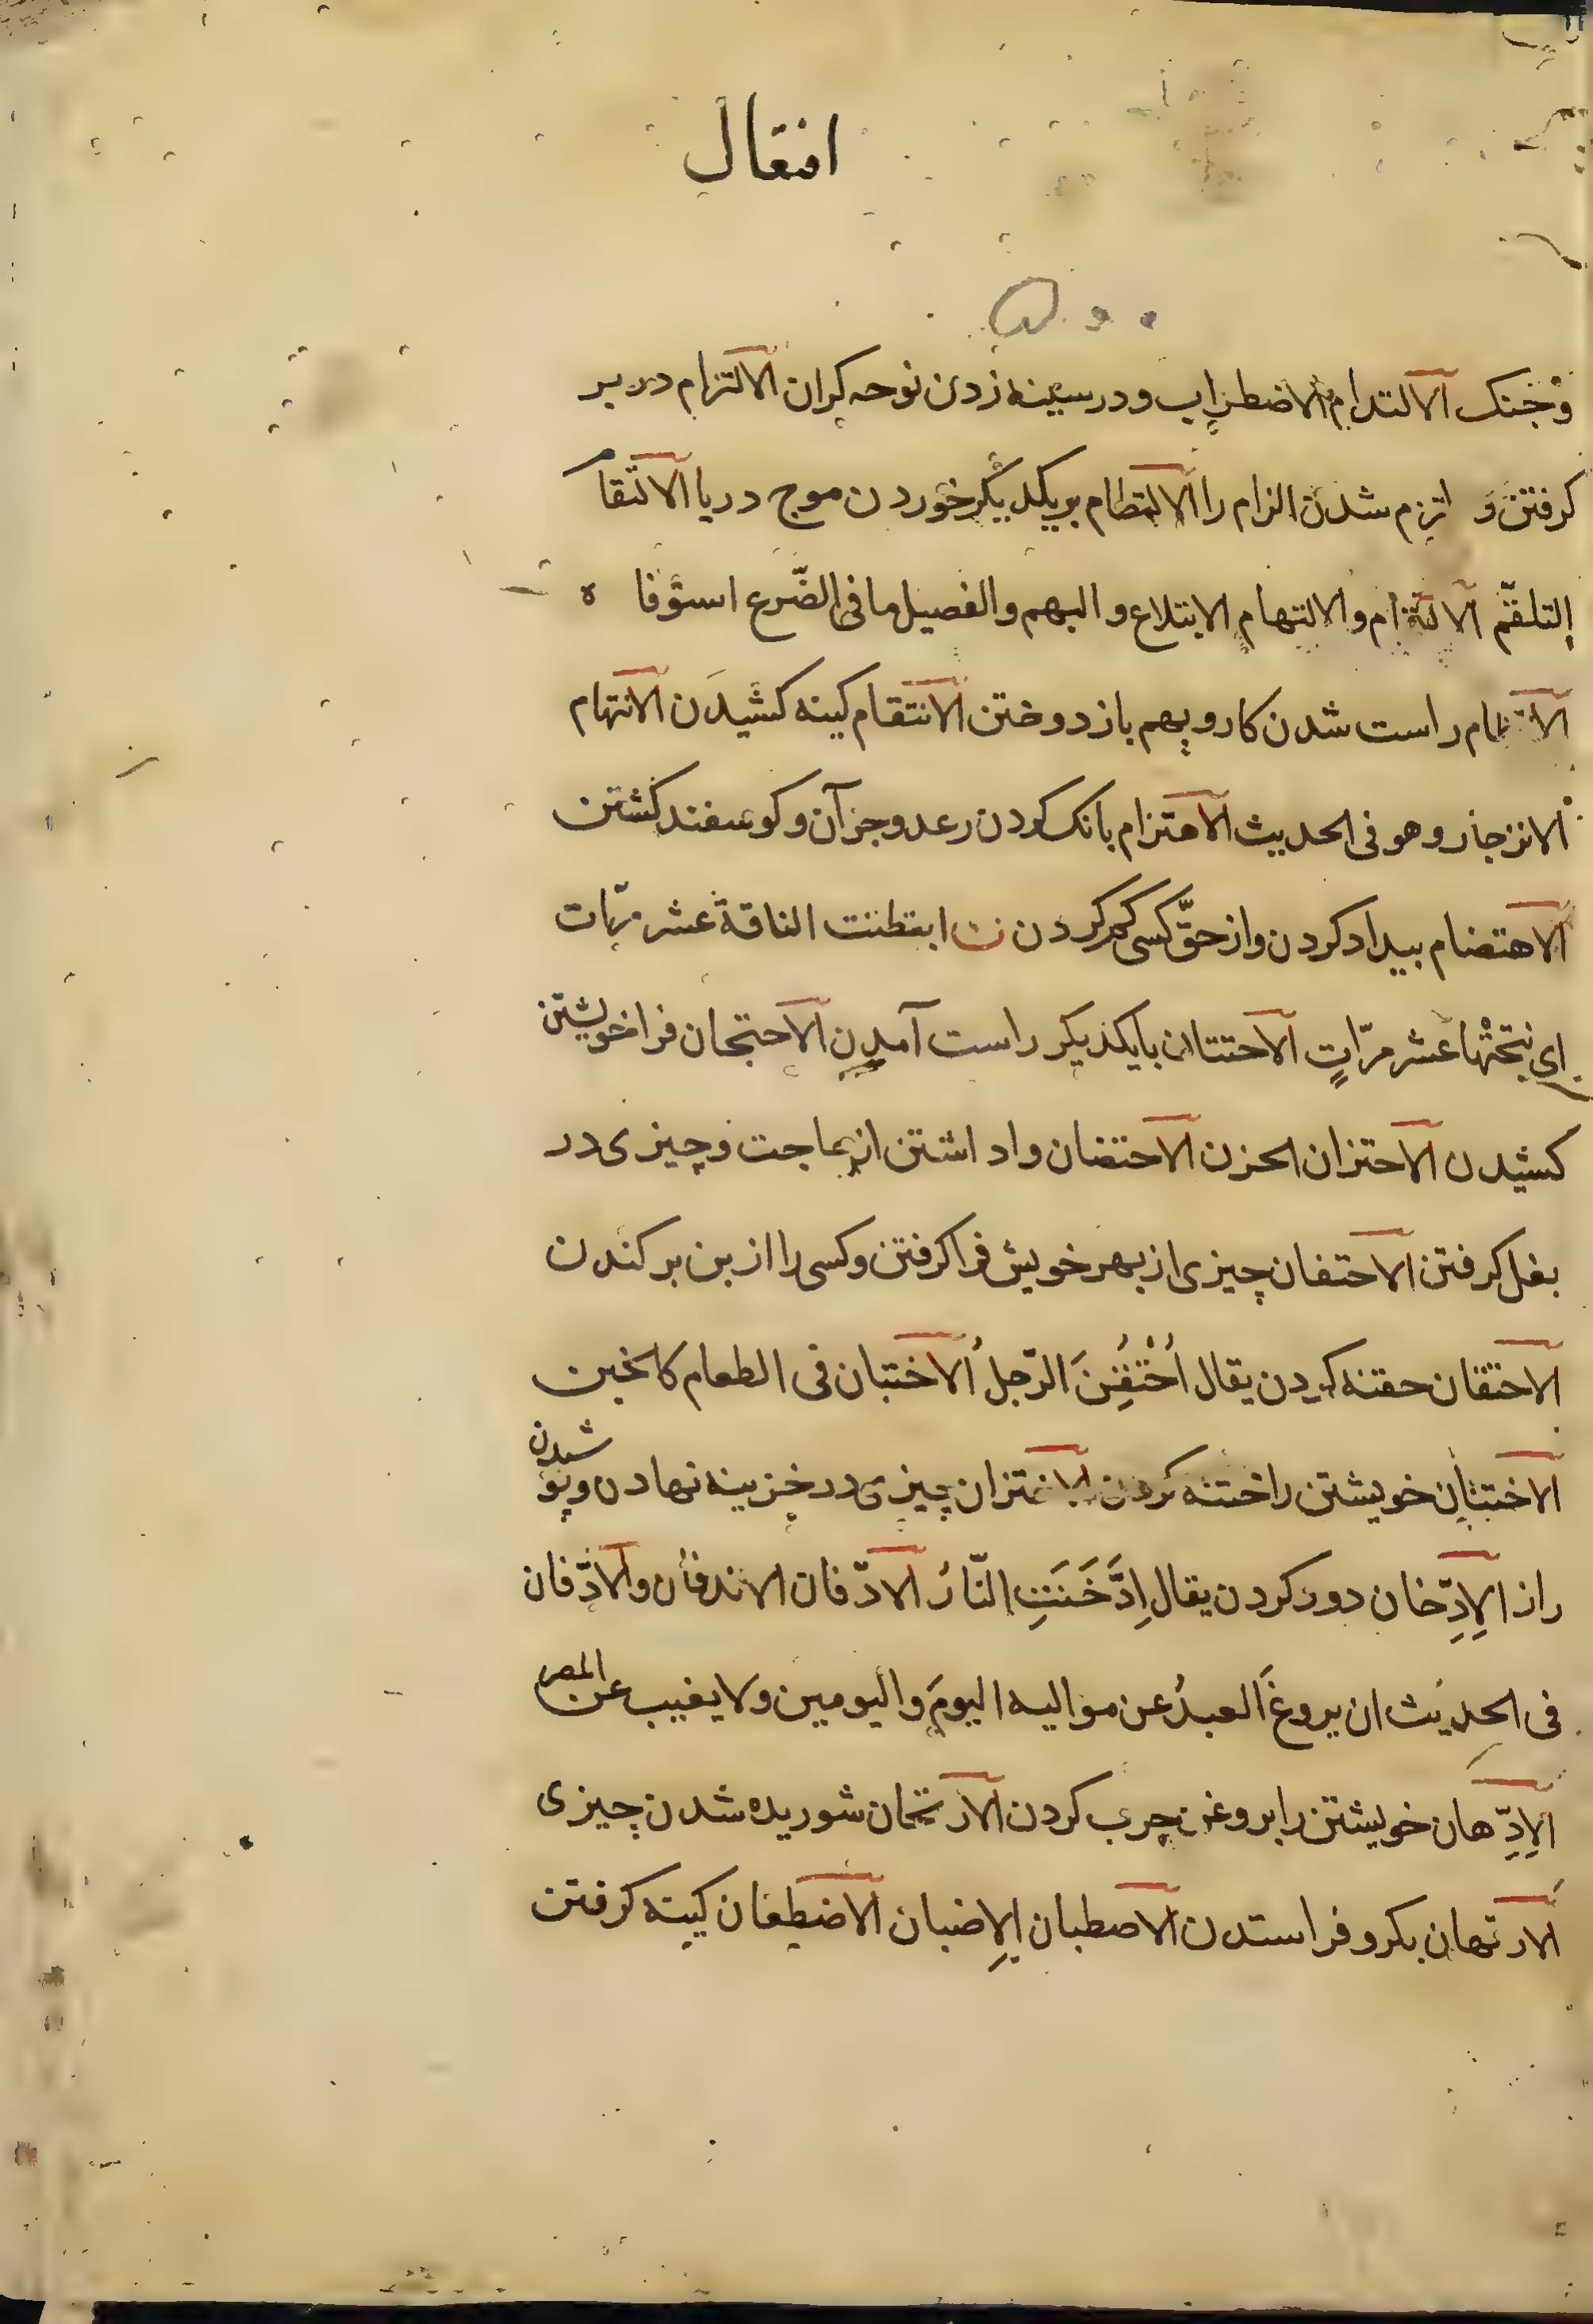 افتعال
و جنک الالتدام الاضطراب و در سینه زدن نوحه کران الالتزام در بر
کرفتن و لازم شدن الزام را الالتطام بر یکدیکر خوردن موج دریا الالتقام
التلقّم الالتهام الابتلاع و البهم و الفصیل ما فی الضّرع استوفاه
راست شدن کار و بهم باز دوختن الانتقام کینه کشیدن الانتهام
الانزجار و هو فی الحدیث الاهتزام بانک کردن رعد و جز آن و کوسفند کشتن
الاهتضام بیداد کردن و از حقّ کسی کم کردن ن ابتطنت الناقة عشر مرّات
ای نتجتْها عشر مرّاتٍ الاحتتان با یکدیکر راست آمدن الاحتجان فرا خویشتن
کشیدن الاحتزان الحزن الاحتضان وا داشتن از حاجت و چیزی در
بغل کرفتن الاحتفان چیزی از بهر خویش فرا کرفتن و کسی را از بن بر کندن
الاحتقان حقنه کردن یقال اُحْتُقِنَ الرّجلُ الاختبان فی الطعام کالخبن
الاختتان خویشتن را ختنه کردن الاختزان چیزی در خزینه نهادن و پو شیدن
راز الاِدِّخان دود کردن یقال اِدَّخَنَتِ النّارُ الادّفان الاندفان و الادّفان
فی الحدیث ان یروغَ العبدُ عن موالیه الیومَ و الیومین و لا یغیب عن المصر
الاِدِّهان خویشتن را بروغن چرب کردن الارتجان شوریده شدن چیزی
الارتهان بکرو فرا ستدن الاصطبان الاِضبان الاضطغان کینه کرفتن